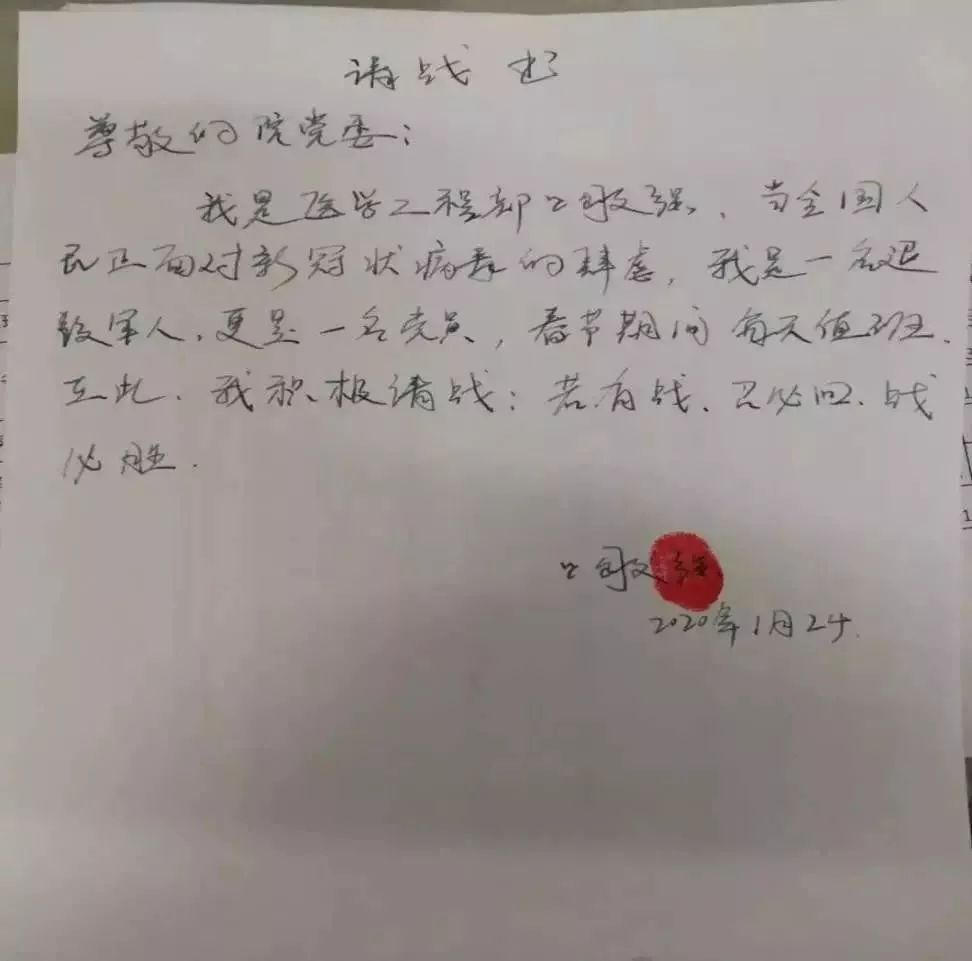 请战书
尊敬的院党委：
我是医学工程部强、当全国人
民正面对新冠状病毒的肆虐，我是一名退
役军人、更是一名党员，春节期间每天值班、
在此、我积极请战：若有战、召必回、战
必胜.
强
2020年1月24.